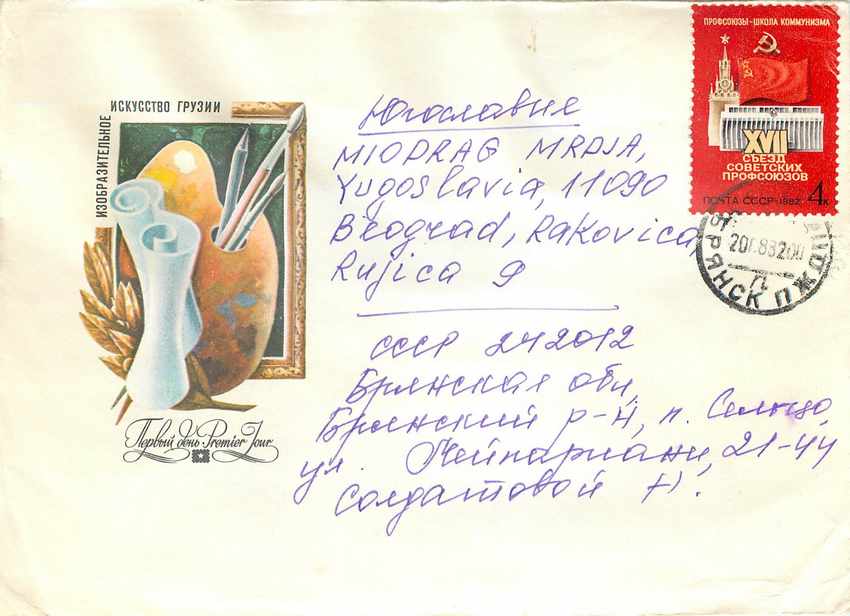 ПРОФСОЮЗЫ-ШКОЛА КОММУНИЗМА
XVII
СЪЕЗД
СОВЕТСКИХ
ПРОФСОЮЗОВ
ПОЧТА СССР·1982 4к
БРЯНСК ПЖДП
ИЗОБРАЗИТЕЛЬНОЕ
ИСКУССТВО ГРУЗИИ
Первый день Premier Jour
Югославия
MIODRAG MRDJA,
Yugoslavia, 11090
Beograd, Rakovica
Rujica 9
СССР 242012
Брянская обл,
Брянский р-н, п. Сельцо,
ул. 21-44
Солдатовой Н.